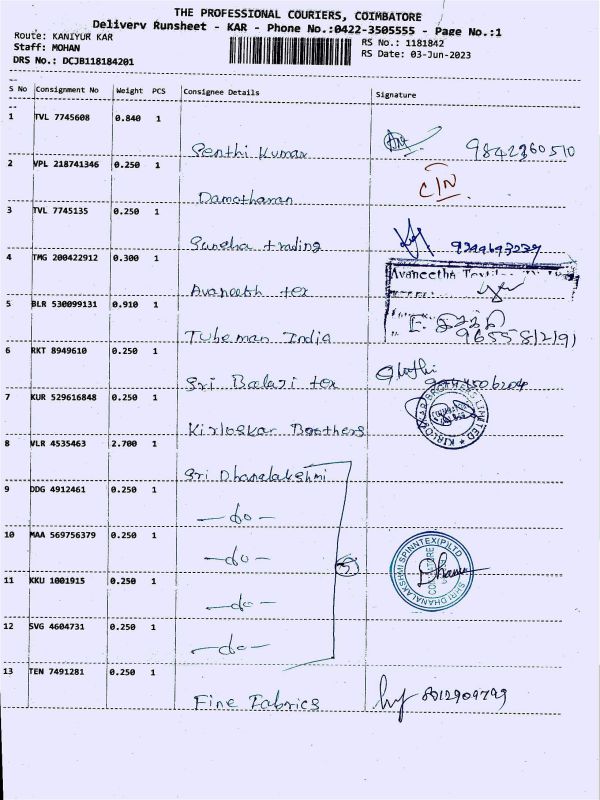 THE PROFESSIONAL COURIERS, COIMBATORE
Delivery Runsheet - KAR - Phone No.:0422-3505555 - Page No.:1
Route: KANIYUR KAR
RS No.: 1181842
Staff: MOHAN
RS Date: 03-Jun-2023
DRS No.: DCJB118184201
S No Consignment No Weight PCS Consignee Details Signature
1 TVL 7745608 0.840 1
Senthi Kumar 9842360510
2 VPL 218741346 0.250 1
Damotharan C/N
3 TVL 7745135 0.250 1
trading
4 TMG 200422912 0.300 1
Avaneetha
Avaneeth tex
5 BLR 530099131 0.910 1
Tubeman India
6 RKT 8949610 0.250 1
Sri Balaji tex
7 KUR 529616848 0.250 1
Kirloskar Brothers KIRLOSKAR BROTHERS LIMITED
8 VLR 4535463 2.700 1
Sri Dhanalakshmi
9 DDG 4912461 0.250 1
-do-
10 MAA 569756379 0.250 1
-do- 5 SHRI DHANALAKSHMI SPINNTEX(P)LTD COIMBATORE
11 KKU 1001915 0.250 1
-do-
12 SVG 4604731 0.250 1
-do-
13 TEN 7491281 0.250 1
Fine Fabrics 8012909799